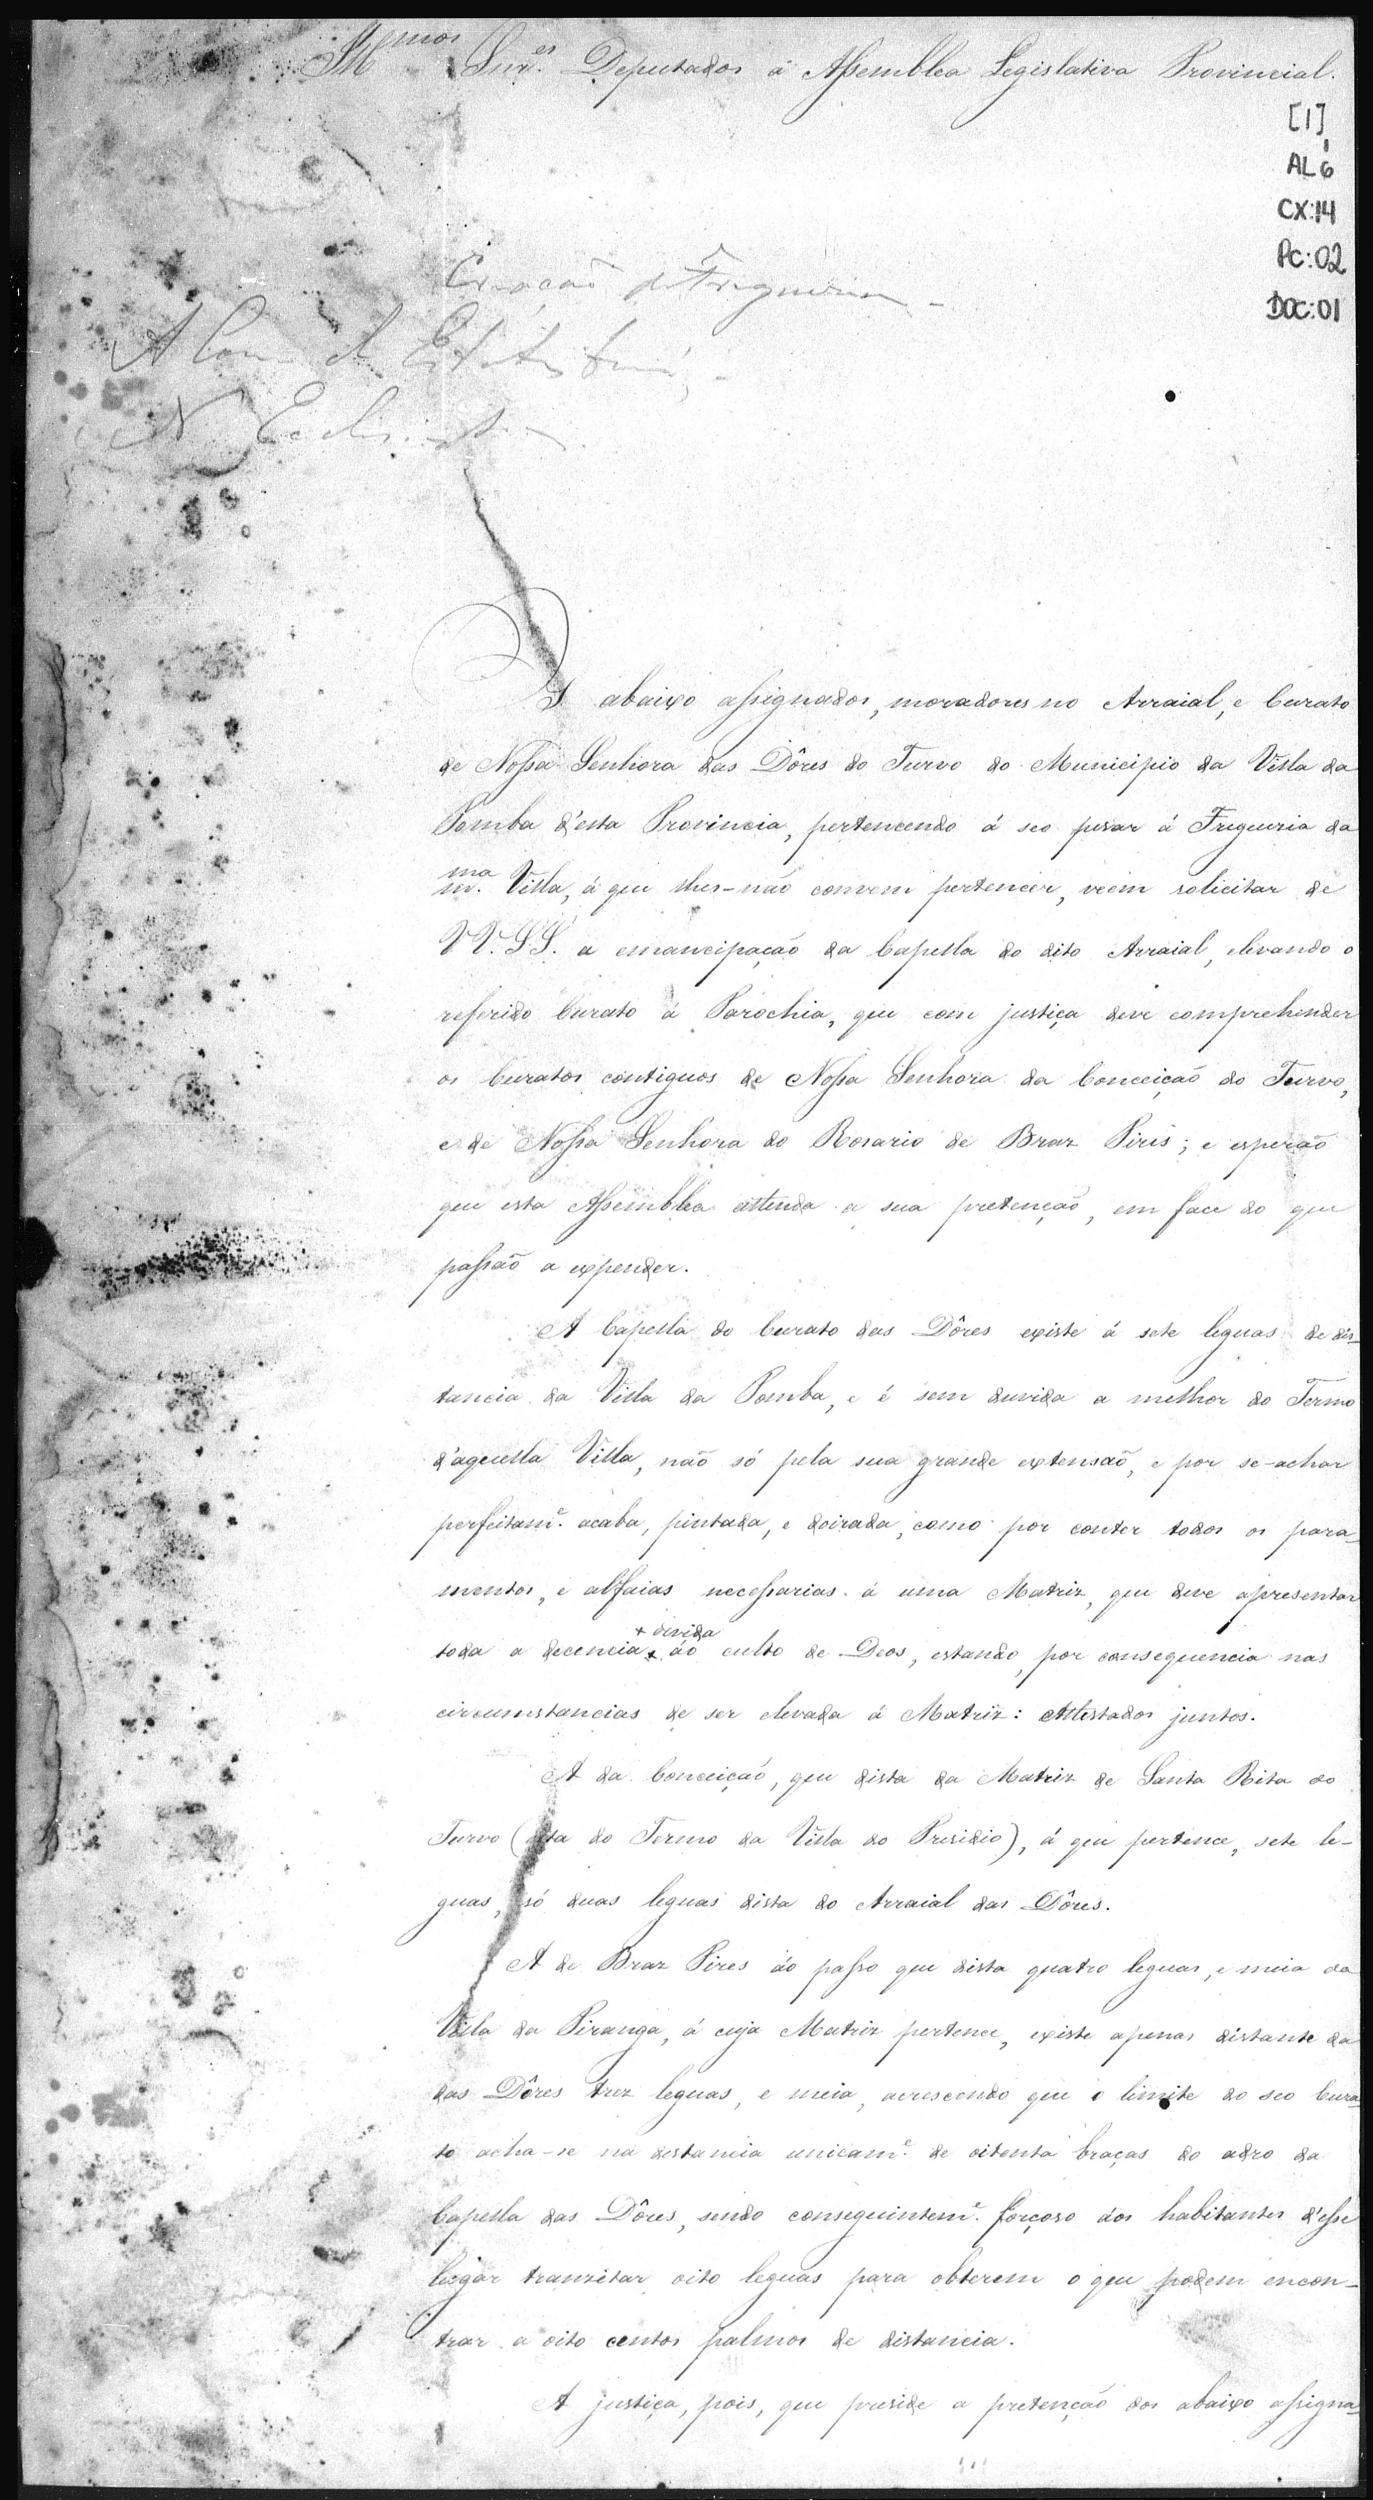 Ill.mos Snr.es Deputados á Assemblea Legislativa Provincial.
[1]
AL 6
CX:14
PC:02
DOC:01
Creação de Freguezia
A Com. de Estatistica
N Ecclesiast
Os abaixo assignados, moradores no Arraial, e Curato
de Nossa Senhora das Dôres do Turvo do Municipio da Villa da
Pomba d'esta Provincia, pertencendo á seo pesar á Freguezia da
m.ma Villa, á que lhes-não convem pertencer, veem solicitar de
VV.SS. a emancipação da Capella do dito Arraial, elevando o
referido Curato á Parochia, que com justiça deve comprehender
os Curatos contiguos de Nossa Senhora da Conceição do Turvo,
e de Nossa Senhora do Rosario de Braz Piris; e esperão
que esta Assemblea attenda a sua pretenção, em face do que
passão a expender.
A Capella do Curato das Dôres existe á sete leguas de dis-
tancia da Villa da Pomba, e é sem duvida a melhor do Termo
d'aquella Villa, não só pela sua grande extensão, e por se-achar
perfeitam.e acaba, pintada, e doirada, como por conter todos os para-
mentos, e alfaias necessarias á uma Matriz, que deve apresentar
toda a decencia + devida áo culto de Deos, estando, por consequencia nas
circumstancias de ser elevada á Matriz: Attestados juntos.
A da Conceição, que dista da Matriz de Santa Rita do
Turvo (esta do Termo da Villa do Presidio), á que pertence, sete le-
guas, só duas leguas dista do Arraial das Dôres.
A de Braz Pires áo passo que dista quatro leguas, e meia da
Villa da Piranga, á cuja Matriz pertence, existe apenas distante da
das Dôres trez leguas, e meia, acrescendo que o limite do seo Cura-
to acha-se na distancia unicam.e de oitenta braças do adro da
Capella das Dôres, sendo conseguintem.e forçoso áos habitantes d'esse
lugar tranzitar oito leguas para obterem o que podem encon-
trar a oito centos palmos de distancia.
A justiça, pois, que preside a pretenção dos abaixo assigna-